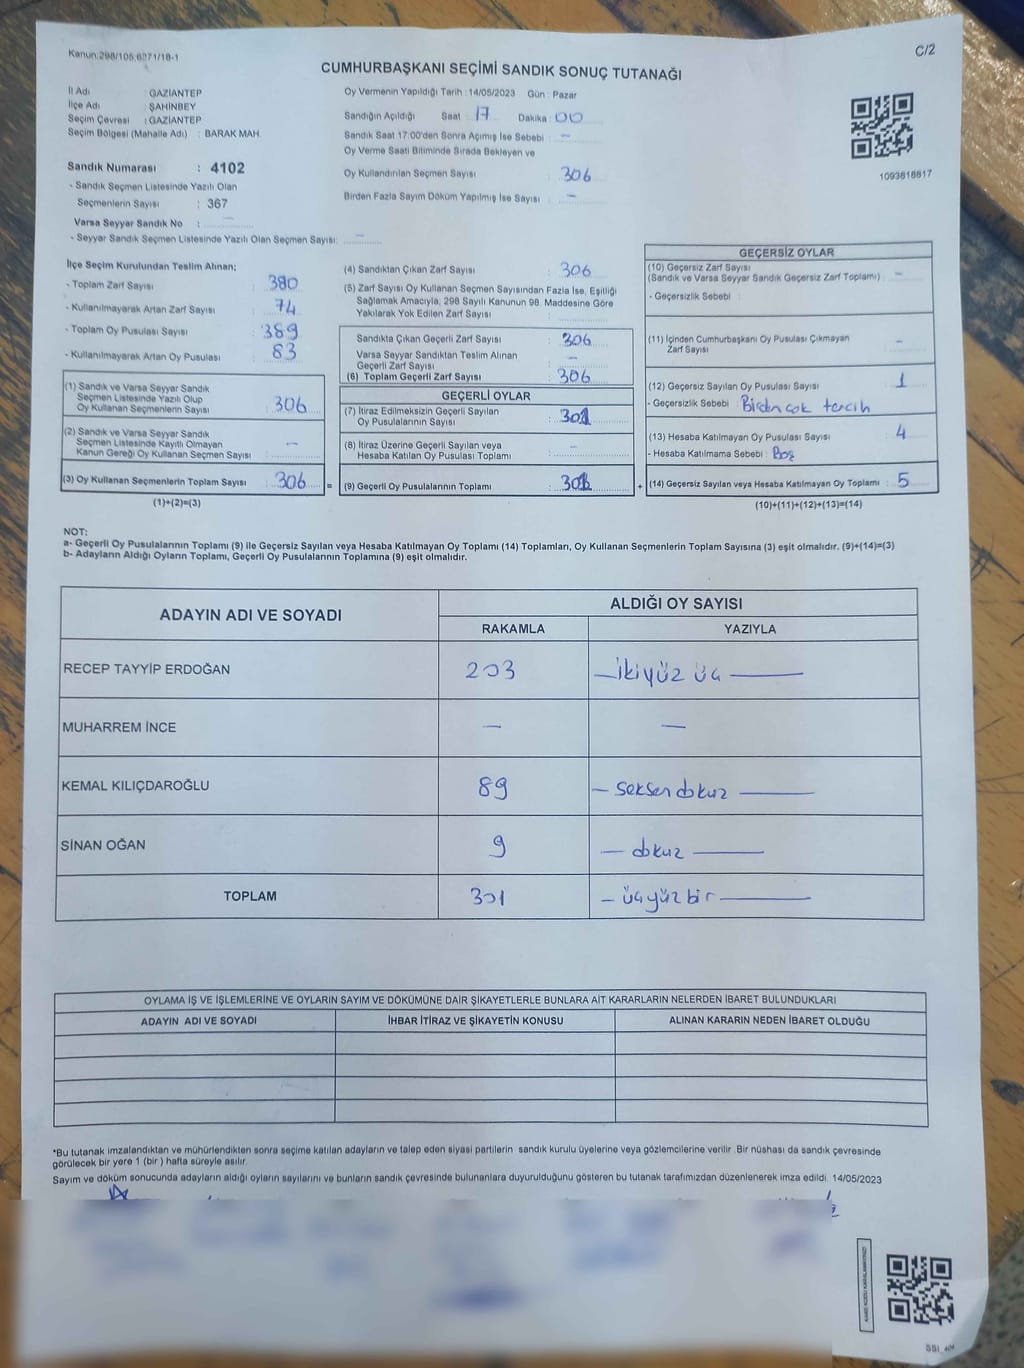 Kanun:298/105,6271/18-1
C/2
CUMHURBAŞKANI SEÇİMİ SANDIK SONUÇ TUTANAĞI
İl Adı : GAZİANTEP
İlçe Adı : ŞAHİNBEY
Seçim Çevresi : GAZİANTEP
Seçim Bölgesi (Mahalle Adı) : BARAK MAH.
Sandık Numarası : 4102
- Sandık Seçmen Listesinde Yazılı Olan
Seçmenlerin Sayısı : 367
Varsa Seyyar Sandık No : —
- Seyyar Sandık Seçmen Listesinde Yazılı Olan Seçmen Sayısı: —
Oy Vermenin Yapıldığı Tarih : 14/05/2023 Gün : Pazar
Sandığın Açıldığı Saat : 17 Dakika : 00
Sandık Saat 17:00'den Sonra Açımış İse Sebebi : —
Oy Verme Saati Bitiminde Sırada Bekleyen ve
Oy Kullandırılan Seçmen Sayısı : 306
Birden Fazla Sayım Döküm Yapılmış İse Sayısı : —
1093818817
İlçe Seçim Kurulundan Teslim Alınan;
- Toplam Zarf Sayısı : 380
- Kullanılmayarak Artan Zarf Sayısı : 74
- Toplam Oy Pusulası Sayısı : 389
- Kullanılmayarak Artan Oy Pusulası : 83
(1) Sandık ve Varsa Seyyar Sandık
Seçmen Listesinde Yazılı Olup
Oy Kullanan Seçmenlerin Sayısı : 306
(2) Sandık ve Varsa Seyyar Sandık
Seçmen Listesinde Kayıtlı Olmayan
Kanun Gereği Oy Kullanan Seçmen Sayısı : —
(3) Oy Kullanan Seçmenlerin Toplam Sayısı : 306 =
(1)+(2)=(3)
(4) Sandıktan Çıkan Zarf Sayısı : 306
(5) Zarf Sayısı Oy Kullanan Seçmen Sayısından Fazla İse, Eşitliği
Sağlamak Amacıyla, 298 Sayılı Kanunun 98. Maddesine Göre
Yakılarak Yok Edilen Zarf Sayısı :
Sandıkta Çıkan Geçerli Zarf Sayısı : 306
Varsa Seyyar Sandıktan Teslim Alınan
Geçerli Zarf Sayısı : —
(6) Toplam Geçerli Zarf Sayısı : 306
GEÇERLİ OYLAR
(7) İtiraz Edilmeksizin Geçerli Sayılan
Oy Pusulalarının Sayısı : 301
(8) İtiraz Üzerine Geçerli Sayılan veya
Hesaba Katılan Oy Pusulası Toplamı : —
(9) Geçerli Oy Pusulalarının Toplamı : 301 +
GEÇERSİZ OYLAR
(10) Geçersiz Zarf Sayısı
(Sandık ve Varsa Seyyar Sandık Geçersiz Zarf Toplamı) : —
- Geçersizlik Sebebi :
(11) İçinden Cumhurbaşkanı Oy Pusulası Çıkmayan
Zarf Sayısı : —
(12) Geçersiz Sayılan Oy Pusulası Sayısı : 1
- Geçersizlik Sebebi : Birden çok tercih
(13) Hesaba Katılmayan Oy Pusulası Sayısı : 4
- Hesaba Katılmama Sebebi : Boş
(14) Geçersiz Sayılan veya Hesaba Katılmayan Oy Toplamı : 5
(10)+(11)+(12)+(13)=(14)
NOT:
a- Geçerli Oy Pusulalarının Toplamı (9) ile Geçersiz Sayılan veya Hesaba Katılmayan Oy Toplamı (14) Toplamları, Oy Kullanan Seçmenlerin Toplam Sayısına (3) eşit olmalıdır. (9)+(14)=(3)
b- Adayların Aldığı Oyların Toplamı, Geçerli Oy Pusulalarının Toplamına (9) eşit olmalıdır.
ADAYIN ADI VE SOYADI ALDIĞI OY SAYISI
RAKAMLA YAZIYLA
RECEP TAYYİP ERDOĞAN 203 — ikiyüz üç —
MUHARREM İNCE — —
KEMAL KILIÇDAROĞLU 89 — seksen dokuz —
SİNAN OĞAN 9 — dokuz —
TOPLAM 301 — üçyüz bir —
OYLAMA İŞ VE İŞLEMLERİNE VE OYLARIN SAYIM VE DÖKÜMÜNE DAİR ŞİKAYETLERLE BUNLARA AİT KARARLARIN NELERDEN İBARET BULUNDUKLARI
ADAYIN ADI VE SOYADI İHBAR İTİRAZ VE ŞİKAYETİN KONUSU ALINAN KARARIN NEDEN İBARET OLDUĞU
*Bu tutanak imzalandıktan ve mühürlendikten sonra seçime katılan adayların ve talep eden siyasi partilerin sandık kurulu üyelerine veya gözlemcilerine verilir. Bir nüshası da sandık çevresinde
görülecek bir yere 1 (bir ) hafta süreyle asılır.
Sayım ve döküm sonucunda adayların aldığı oyların sayılarını ve bunların sandık çevresinde bulunanlara duyurulduğunu gösteren bu tutanak tarafımızdan düzenlenerek imza edildi. 14/05/2023
KARE KODU KARALAMAYINIZ!